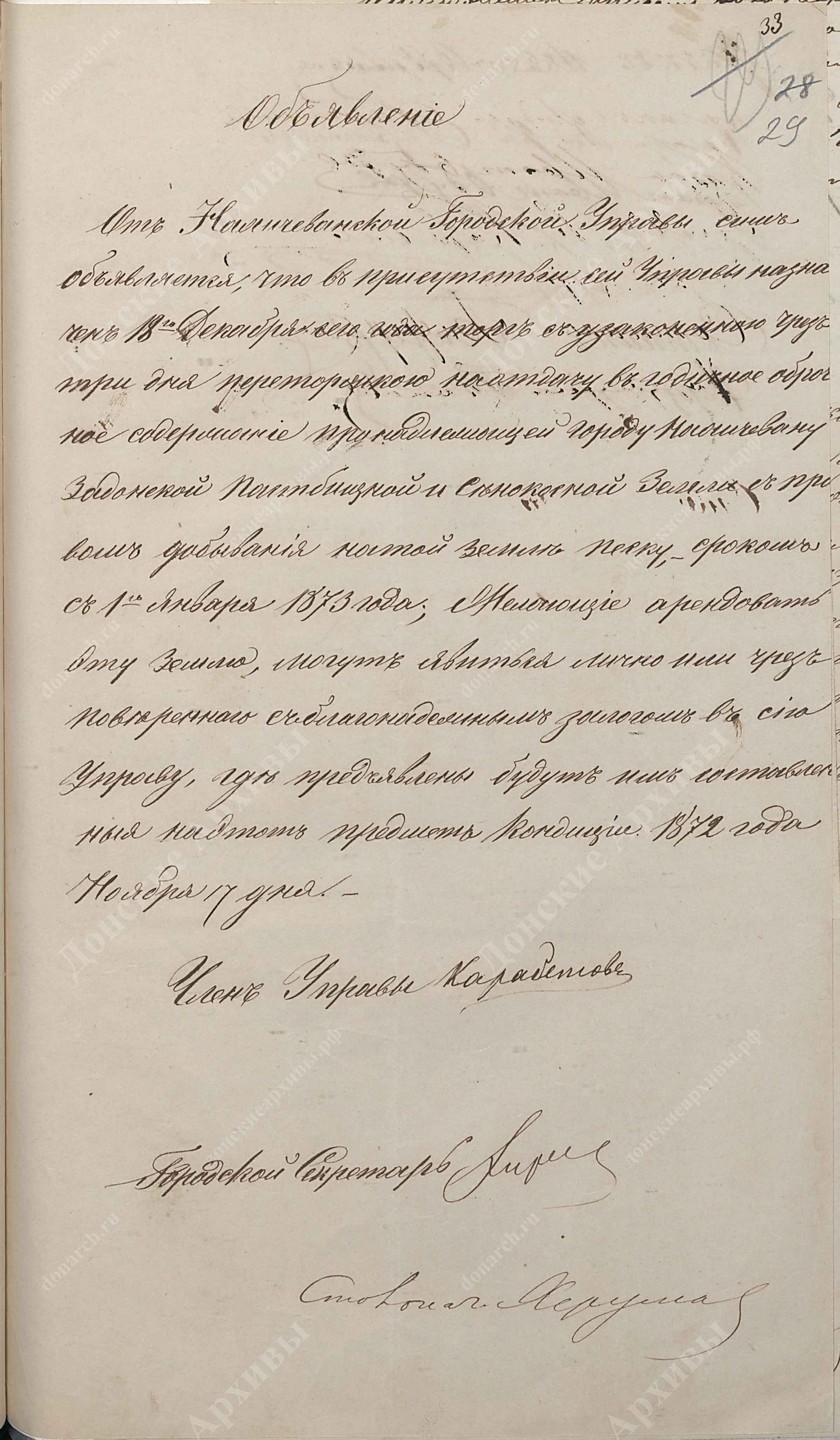 33
28
29
Объявленіе
Отъ Нахичеванской Городской Управы симъ
объявляется, что въ присутствіи сей Управы назна
ченъ 18го Декабря сего года торгъ съ узаконенною чрезъ
три дня переторжкою на отдачу въ годичное оброч
ное содержаніе принадлежащей городу Нахичевану
Задонской Пастбищной и Сѣнокосной Земли съ пра
вомъ добыванія на той землѣ песку, срокомъ
съ 1го Января 1873 года; Желающіе арендовать
эту Землю, могутъ явиться лично или чрезъ
повѣреннаго съ благонадежнымъ залогомъ въ сію
Управу, гдѣ предъявлены будутъ имъ составлен
ныя на этотъ предметъ Кондиціи. 1872 года
Ноября 17 дня. –
Членъ Управы Карабетовъ
Городской Секретарь
Столонач.
Донские Архивы
donarch.ru
донскиеархивы.рф